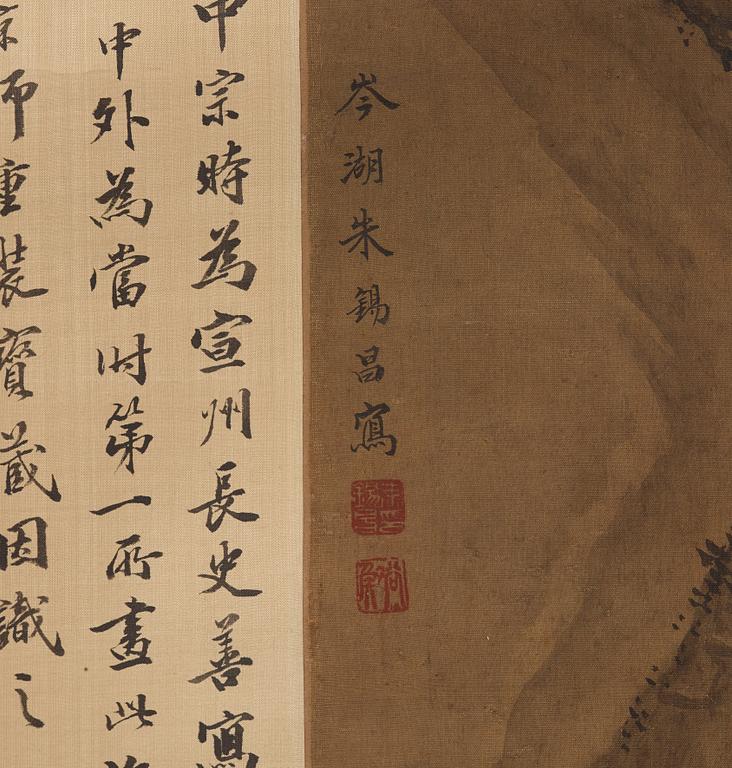 岑湖朱錫昌寫
中宗時為宣州長史善寫
中外為當时第一所畫此
師重裝寶藏因識之